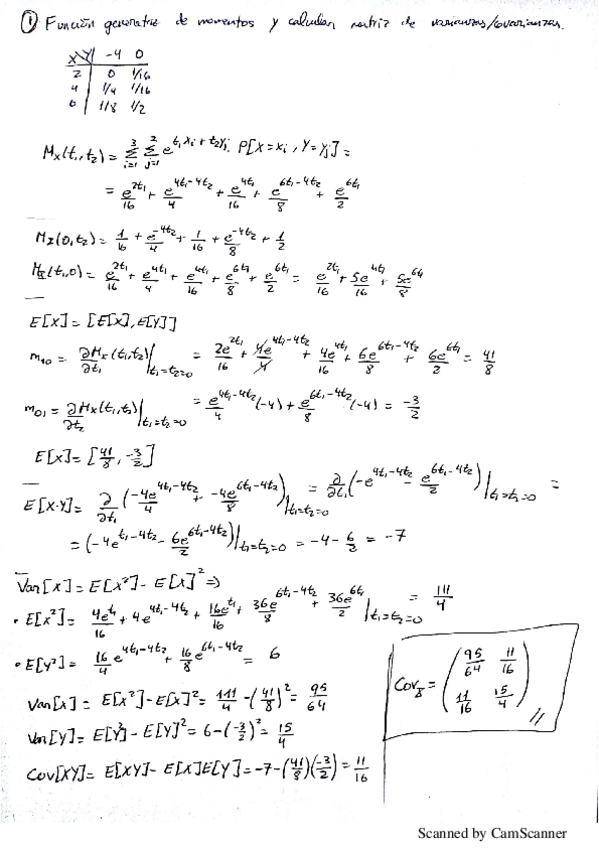 ① Función generatriz de momentos y calcular matriz de varianzas/covarianzas.
X\Y | -4 0
2 | 0 1/16
4 | 1/4 1/16
6 | 1/8 1/2
Mx(t₁,t₂) = Σ(i=1..3) Σ(j=1..2) e^(t₁xi + t₂yj) · P[X=xi, Y=yj] =
= e^(2t₁)/16 + e^(4t₁-4t₂)/4 + e^(4t₁)/16 + e^(6t₁-4t₂)/8 + e^(6t₁)/2
Mx(0,t₂) = 1/16 + e^(-4t₂)/4 + 1/16 + e^(-4t₂)/8 + 1/2
Mx(t₁,0) = e^(2t₁)/16 + e^(4t₁)/4 + e^(4t₁)/16 + e^(6t₁)/8 + e^(6t₁)/2 = e^(2t₁)/16 + 5e^(4t₁)/16 + 5e^(6t₁)/8
E[X] = [E[X], E[Y]]
m₁₀ = ∂Mx(t₁,t₂)/∂t₁ |t₁=t₂=0 = 2e^(2t₁)/16 + 4e^(4t₁-4t₂)/4 + 4e^(4t₁)/16 + 6e^(6t₁-4t₂)/8 + 6e^(6t₁)/2 = 41/8
m₀₁ = ∂Mx(t₁,t₂)/∂t₂ |t₁=t₂=0 = e^(4t₁-4t₂)/4 (-4) + e^(6t₁-4t₂)/8 (-4) = -3/2
E[X] = [41/8, -3/2]
E[X·Y] = ∂/∂t₁ (-4e^(4t₁-4t₂)/4 + -4e^(6t₁-4t₂)/8) |t₁=t₂=0 = ∂/∂t₁ (-e^(4t₁-4t₂) - e^(6t₁-4t₂)/2) |t₁=t₂=0 =
= (-4e^(t₁-4t₂) - 6e^(6t₁-4t₂)/2) |t₁=t₂=0 = -4 - 6/2 = -7
Var[X] = E[X²] - E[X]² ⇒
• E[X²] = 4e^(t₁)/16 + 4e^(4t₁-4t₂) + 16e^(t₁)/16 + 36e^(6t₁-4t₂)/8 + 36e^(6t₁)/2 |t₁=t₂=0 = 111/4
• E[Y²] = 16/4 e^(4t₁-4t₂) + 16/8 e^(6t₁-4t₂) = 6
Var[X] = E[X²] - E[X]² = 111/4 - (41/8)² = 95/64
Var[Y] = E[Y²] - E[Y]² = 6 - (-3/2)² = 15/4
Cov[XY] = E[XY] - E[X]E[Y] = -7 - (41/8)(-3/2) = 11/16
Cov = (95/64 11/16
11/16 15/4)
Scanned by CamScanner